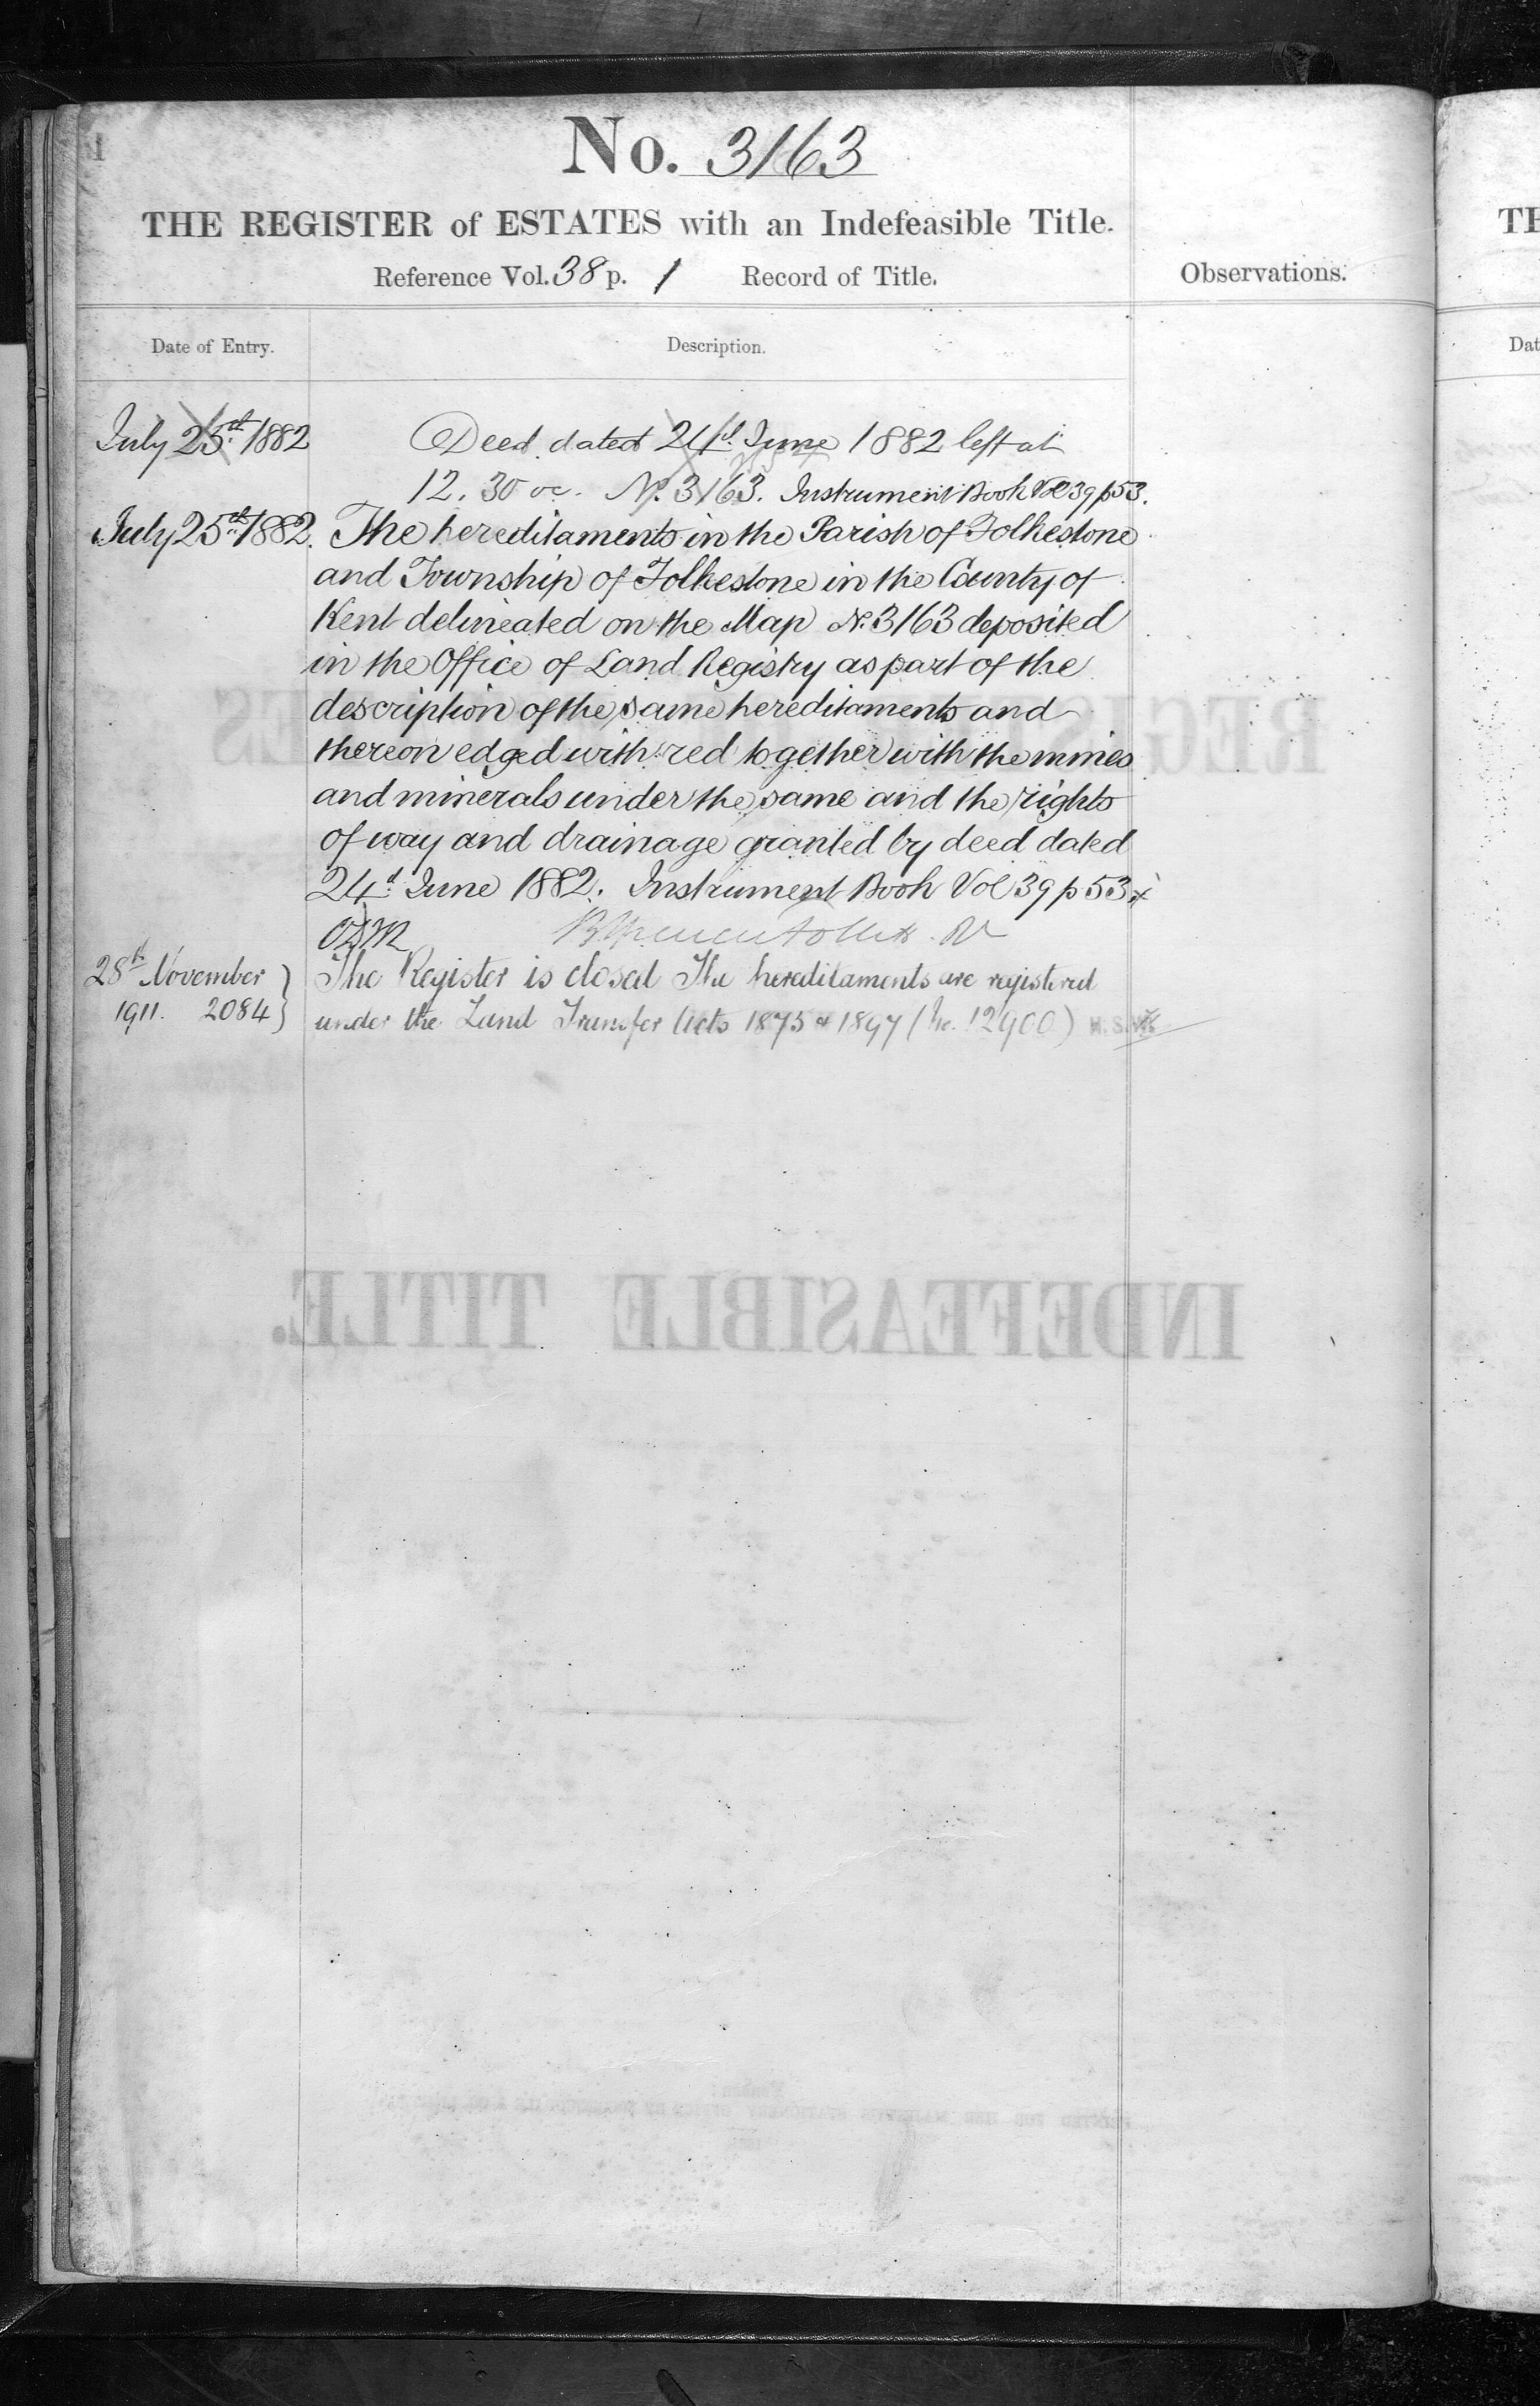 1
No. 3163
THE REGISTER of ESTATES with an Indefeasible Title.
Reference Vol. 38 p. 1 Record of Title.
Observations.
Date of Entry.
Description.
July 25th 1882
Deed dated 24th June 1882 left at
12.30 oc. No. 3163. Instrument Book Vol 39 p 53.
July 25th 1882.
The hereditaments in the Parish of Folkestone
and Township of Folkestone in the County of
Kent delineated on the Map No. 3163 deposited
in the Office of Land Registry as part of the
description of the same hereditaments and
thereon edged with red together with the mines
and minerals under the same and the rights
of way and drainage granted by deed dated
24th June 1882. Instrument Book Vol 39 p 53 x
28th November
1911. 2084
The Register is closed The hereditaments are registered
under the Land Transfer Acts 1875 & 1897 (No. 12900)
REGISTER
INDEFEASIBLE TITLE.
TH
Dat